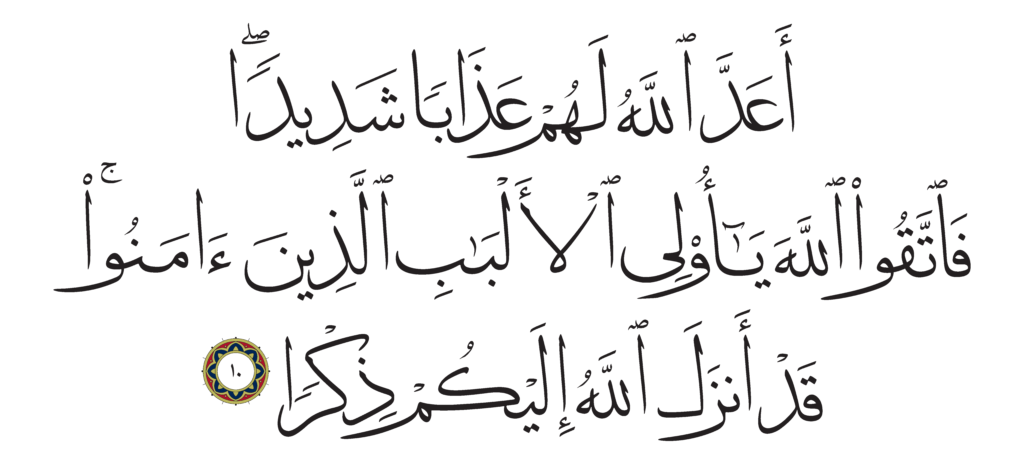 أَعَدَّ ٱللَّهُ لَهُمْ عَذَابًا شَدِيدًا ۖ
فَٱتَّقُوا۟ ٱللَّهَ يَـٰٓأُو۟لِى ٱلْأَلْبَـٰبِ ٱلَّذِينَ ءَامَنُوا۟ ۚ
قَدْ أَنزَلَ ٱللَّهُ إِلَيْكُمْ ذِكْرًا ١٠